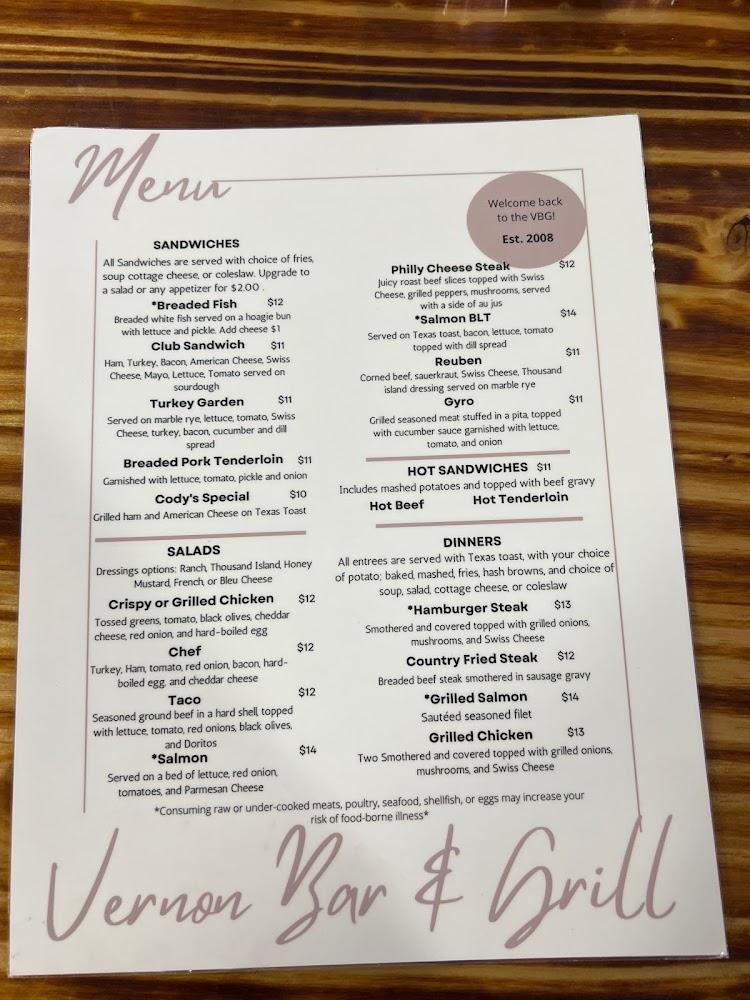 Menu
Welcome back
to the VBG!
Est. 2008
SANDWICHES
All Sandwiches are served with choice of fries,
soup cottage cheese, or coleslaw. Upgrade to
a salad or any appetizer for $2.00 .
*Breaded Fish $12
Breaded white fish served on a hoagie bun
with lettuce and pickle. Add cheese $1
Club Sandwich $11
Ham, Turkey, Bacon, American Cheese, Swiss
Cheese, Mayo, Lettuce, Tomato served on
sourdough
Turkey Garden $11
Served on marble rye, lettuce, tomato, Swiss
Cheese, turkey, bacon, cucumber and dill
spread
Breaded Pork Tenderloin $11
Garnished with lettuce, tomato, pickle and onion
Cody's Special $10
Grilled ham and American Cheese on Texas Toast
SALADS
Dressings options: Ranch, Thousand Island, Honey
Mustard, French, or Bleu Cheese
Crispy or Grilled Chicken $12
Tossed greens, tomato, black olives, cheddar
cheese, red onion, and hard-boiled egg
Chef $12
Turkey, Ham, tomato, red onion, bacon, hard-
boiled egg, and cheddar cheese
Taco $12
Seasoned ground beef in a hard shell, topped
with lettuce, tomato, red onions, black olives,
and Doritos
*Salmon $14
Served on a bed of lettuce, red onion,
tomatoes, and Parmesan Cheese
Philly Cheese Steak $12
Juicy roast beef slices topped with Swiss
Cheese, grilled peppers, mushrooms, served
with a side of au jus
*Salmon BLT $14
Served on Texas toast, bacon, lettuce, tomato
topped with dill spread
Reuben $11
Corned beef, sauerkraut, Swiss Cheese, Thousand
island dressing served on marble rye
Gyro $11
Grilled seasoned meat stuffed in a pita, topped
with cucumber sauce garnished with lettuce,
tomato, and onion
HOT SANDWICHES $11
Includes mashed potatoes and topped with beef gravy
Hot Beef Hot Tenderloin
DINNERS
All entrees are served with Texas toast, with your choice
of potato; baked, mashed, fries, hash browns, and choice of
soup, salad, cottage cheese, or coleslaw
*Hamburger Steak $13
Smothered and covered topped with grilled onions,
mushrooms, and Swiss Cheese
Country Fried Steak $12
Breaded beef steak smothered in sausage gravy
*Grilled Salmon $14
Sautéed seasoned filet
Grilled Chicken $13
Two Smothered and covered topped with grilled onions,
mushrooms, and Swiss Cheese
*Consuming raw or under-cooked meats, poultry, seafood, shellfish, or eggs may increase your
risk of food-borne illness*
Vernon Bar & Grill